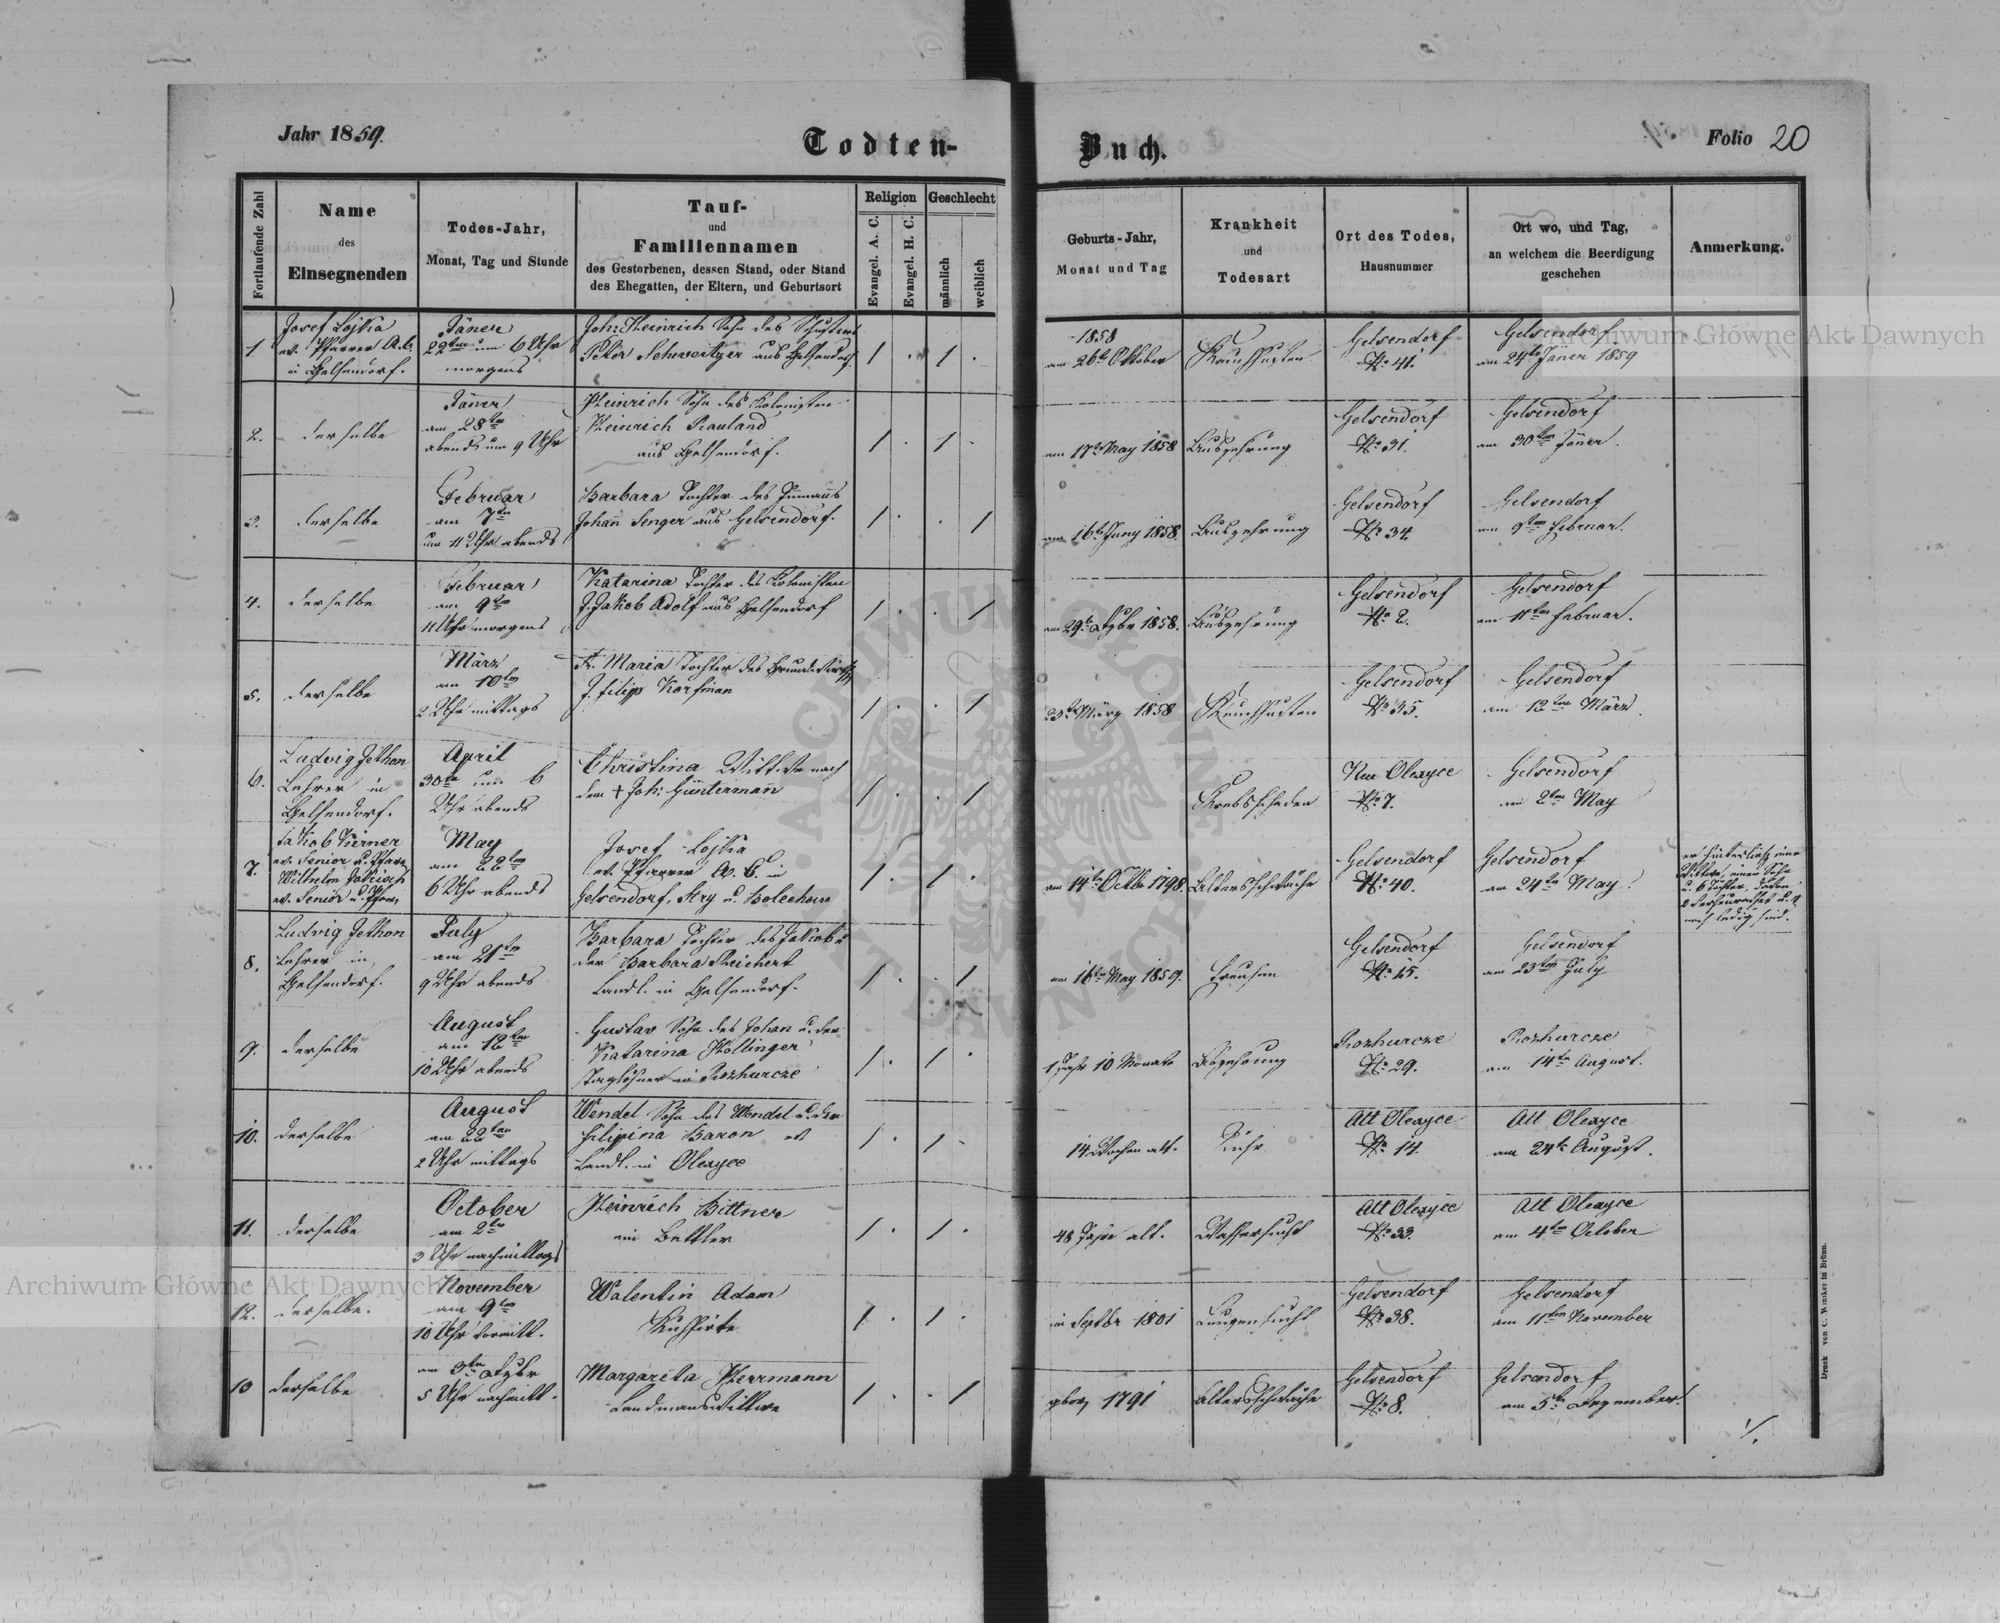 Jahr 1859.
Todten-
Buch.
Folio 20
Fortlaufende Zahl
Name
des
Einsegnenden
Todes-Jahr,
Monat, Tag und Stunde
Tauf-
und
Familiennamen
des Gestorbenen, dessen Stand, oder Stand
des Ehegatten, der Eltern, und Geburtsort
Religion
Evangel. A. C.
Evangel. H. C.
Geschlecht
männlich
weiblich
Geburts-Jahr,
Monat und Tag
Krankheit
und
Todesart
Ort des Todes,
Hausnummer
Ort wo, und Tag,
an welchem die Beerdigung
geschehen
Anmerkung.
1
Josef Lojka
ev. Pfarrer A.C.
in Gelsendorf.
Jäner
22ten um 6 Uhr
morgens
Joh: Heinrich Sohn des Schusters
Peter Schweitzer aus Gelsendorf.
/ . / .
1858
am 26te Oktober
Keuchhusten
Gelsendorf
No. 41.
Gelsendorf
am 24te Jäner 1859
2.
derselbe
Jäner
am 28ten
abends um 9 Uhr
Heinrich Sohn des Kolonisten
Heinrich Rauland
aus Gelsendorf.
/ . / .
am 17te May 1858
Auszehrung
Gelsendorf
No. 31.
Gelsendorf
am 30ten Jäner.
3.
derselbe
Februar
am 7ten
um 11 Uhr abends
Barbara Tochter des
Johann Senger aus Gelsendorf.
/ . . /
am 16te Juny 1858.
Auszehrung
Gelsendorf
No. 34
Gelsendorf
am 9ten Februar.
4.
derselbe
Februar
am 9ten
11 Uhr morgens
Katarina Tochter des Kolonisten
J. Jakob Adolf aus Gelsendorf
/ . . /
am 29te 1858.
Auszehrung
Gelsendorf
No. 2.
Gelsendorf
am 11ten Februar.
5.
derselbe
März
am 10ten
2 Uhr mittags
Maria Tochter des Grundwirths
J. Filipp Korfman
/ . . /
März 1858
Keuchhusten
Gelsendorf
No. 35.
Gelsendorf
am 12ten März.
6.
Ludvig Jethon
Lehrer in
Gelsendorf.
April
30te um 6
Uhr abends
Christina Wittwe nach
dem + Joh: Güntermann
/ . . /
Krebsschaden
Neu Olexyce
No. 7.
Gelsendorf
am 2ten May
7.
Jakob
ev. Senior u. Pfarr.
Wilhelm
ev. Senior u. Pfarr.
May
am 22ten
6 Uhr abends
Josef Lojka
ev. Pfarrer A. C. in
Gelsendorf, Stry u. Bolechow
/ . / .
am 14te Octbr 1798.
Altersschwäche
Gelsendorf
No. 40.
Gelsendorf
am 24ten May.
er hinterließ eine
Wittwe, einen Sohn
u. 6 Töchter, davon
2 u. 4
noch ledig sind.
8.
Ludvig Jethon
Lehrer in
Gelsendorf.
July
am 21ten
9 Uhr abends
Barbara Tochter des Jakob u
der Barbara Reichert
Landl. in Gelsendorf.
/ . . /
am 16ten May 1859.
Freusen
Gelsendorf
No. 15.
Gelsendorf
am 23ten July
9.
derselbe
August
am 12ten
10 Uhr abends
Gustav Sohn des Johan u. der
Katarina Hollinger
Taglöhner in Rozhurcze
/ . / .
1 Jahr 10 Monate
Abzehrung
Rozhurcze
No. 29.
Rozhurcze
am 14te August.
10.
derselbe
August
am 22ten
2 Uhr mittags
Wendel Sohn des Wendel u. der
Filipina Baron
Landl. in Olexyce
/ . / .
14 Wochen alt.
Ruhr
Alt Olexyce
No. 14.
Alt Olexyce
am 24te August.
11.
derselbe
October
am 2te
3 Uhr nachmittags
Heinrich Bittner
ein Bettler
/ . / .
48 Jahre alt.
Wassersucht
Alt Olexyce
No. 33.
Alt Olexyce
am 4ten October
12.
derselbe.
November
am 9ten
10 Uhr vormitt.
Walentin Adam
Kuhhirte
/ . / .
in Septbr 1801
Lungensucht
Gelsendorf
No. 38.
Gelsendorf
am 11ten November
13
derselbe
am 3ten Dzbr
5 Uhr nachmitt.
Margareta Herrmann
Landmanswittwe
/ . . /
gebor. 1791
Altersschwäche
Gelsendorf
No. 8.
Gelsendorf
am 5te Dezember.
Druck von C. Winiker in Brünn.
Archiwum Główne Akt Dawnych
Archiwum Główne Akt Dawnych
ARCHIWUM GŁÓWNE AKT DAWNYCH